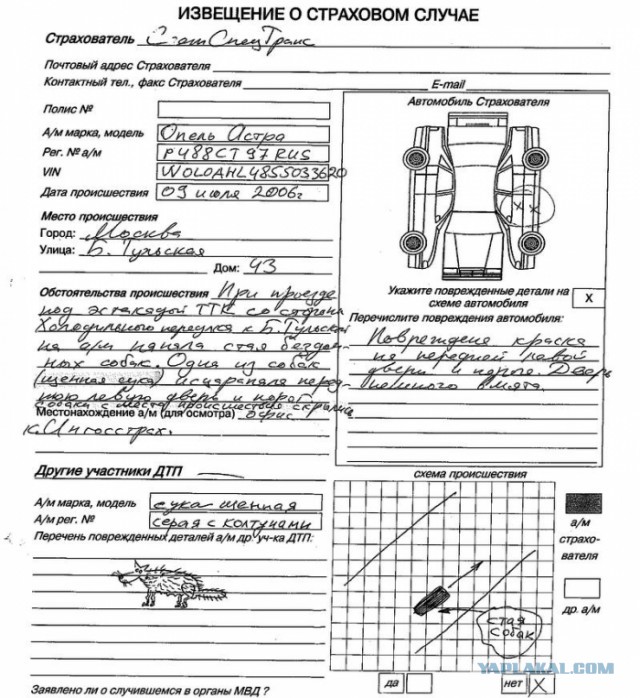 ИЗВЕЩЕНИЕ О СТРАХОВОМ СЛУЧАЕ
Страхователь СпецТранс
Почтовый адрес Страхователя
Контактный тел., факс Страхователя E-mail
Полис №
А/м марка, модель Опель Астра
Рег. № а/м Р488СТ97RUS
VIN W0L0AHL4855033620
Дата происшествия 09 июля 2006г
Место происшествия
Город: Москва
Улица: Б. Тульская
Дом: 43
Обстоятельства происшествия При проезде
под эстакадой ТТК со стороны
Холодильного переулка к Б.Тульской
на а/м напала стая бездом-
ных собак. Одна из собак
(щенная сука) исцарапала перед-
нюю левую дверь и порог.
Собаки с места происшествия скрылись
Местонахождение а/м (для осмотра) офис
к. Ингосстрах.
Автомобиль Страхователя
X X
Укажите поврежденные детали на
схеме автомобиля X
Перечислите повреждения автомобиля:
Повреждена краска
на передней левой
двери и пороге. Дверь
немного вмята.
Другие участники ДТП
А/м марка, модель сука щенная
А/м рег. № серая с колтунами
Перечень поврежденных деталей а/м др. уч-ка ДТП:
схема происшествия
стая
собак
а/м
страхо-
вателя
др. а/м
Заявлено ли о случившемся в органы МВД ? да нет X
YAPLAKAL.COM